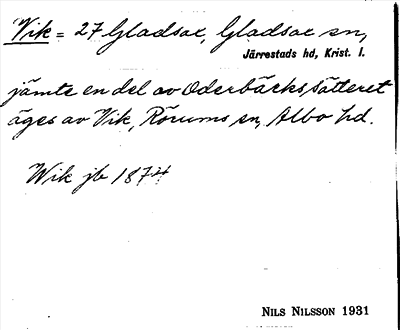 Vik = 27 Gladsax, Gladsax sn,
Järrestads hd, Krist. l.
jämte en del av Oderbäcksfätteret
äges av Vik, Rörums sn, Albo hd.
Wik jb 1874
NILS NILSSON 1931